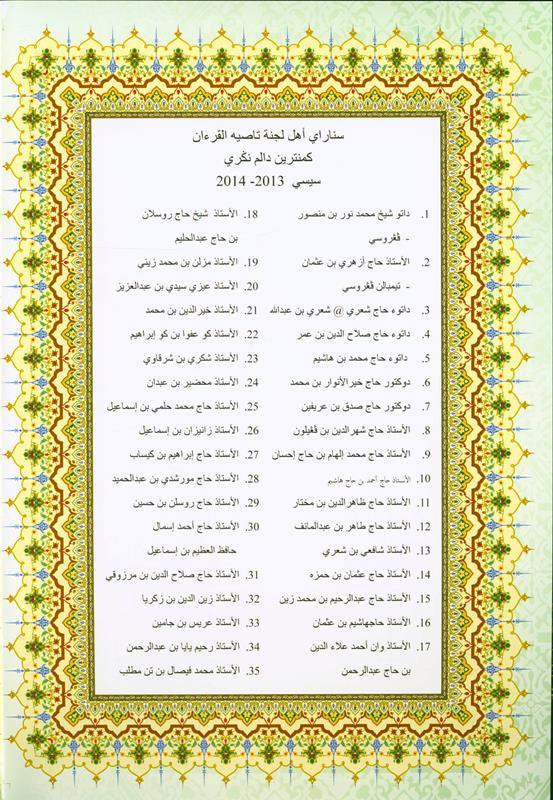 سناراي أهل لجنة تاصيه القرءان
كمنترين دالم نڬري
سيسي 2013- 2014
1. داتو شيخ محمد نور بن منصور
- ڤڠروسي
2. الأستاذ حاج أزهري بن عثمان
- تيمبالن ڤڠروسي
3. داتوء حاج شعري @ شعري بن عبدالله
4. داتوء حاج صلاح الدين بن عمر
5. داتوء حاج محمد بن هاشيم
6. دوكتور حاج خيرالأنوار بن محمد
7. دوكتور حاج صدق بن عريفين
8. الأستاذ حاج شهرالدين بن ڤڠيلون
9. الأستاذ حاج محمد إلهام بن حاج إحسان
10. الأستاذ حاج أحمد بن حاج هاشيم
11. الأستاذ حاج ظاهرالدين بن مختار
12. الأستاذ حاج طاهر بن عبدالمانف
13. الأستاذ شافعي بن شعري
14. الأستاذ حاج عثمان بن حمزه
15. الأستاذ حاج عبدالرحيم بن محمد زين
16. الأستاذ حاجهاشيم بن عثمان
17. الأستاذ وان أحمد علاء الدين
بن حاج عبدالرحمن
18. الأستاذ شيخ حاج روسلان
بن حاج عبدالحليم
19. الأستاذ مزلن بن محمد زيني
20. الأستاذ عيزي سيدي بن عبدالعزيز
21. الأستاذ خيرالدين بن محمد
22. الأستاذ كو عفوا بن كو إبراهيم
23. الأستاذ شكري بن شرقاوي
24. الأستاذ محضير بن عبدان
25. الأستاذ حاج محمد حلمي بن إسماعيل
26. الأستاذ زانيزان بن إسماعيل
27. الأستاذ حاج إبراهيم بن كيساب
28. الأستاذ حاج مورشدي بن عبدالحميد
29. الأستاذ حاج روسلن بن حسين
30. الأستاذ حاج أحمد إسمال
حافظ العظيم بن إسماعيل
31. الأستاذ حاج صلاح الدين بن مرزوقي
32. الأستاذ زين الدين بن زكريا
33. الأستاذ عريس بن جامين
34. الأستاذ رحيم يايا بن عبدالرحمن
35. الأستاذ محمد فيصال بن تن مطلب